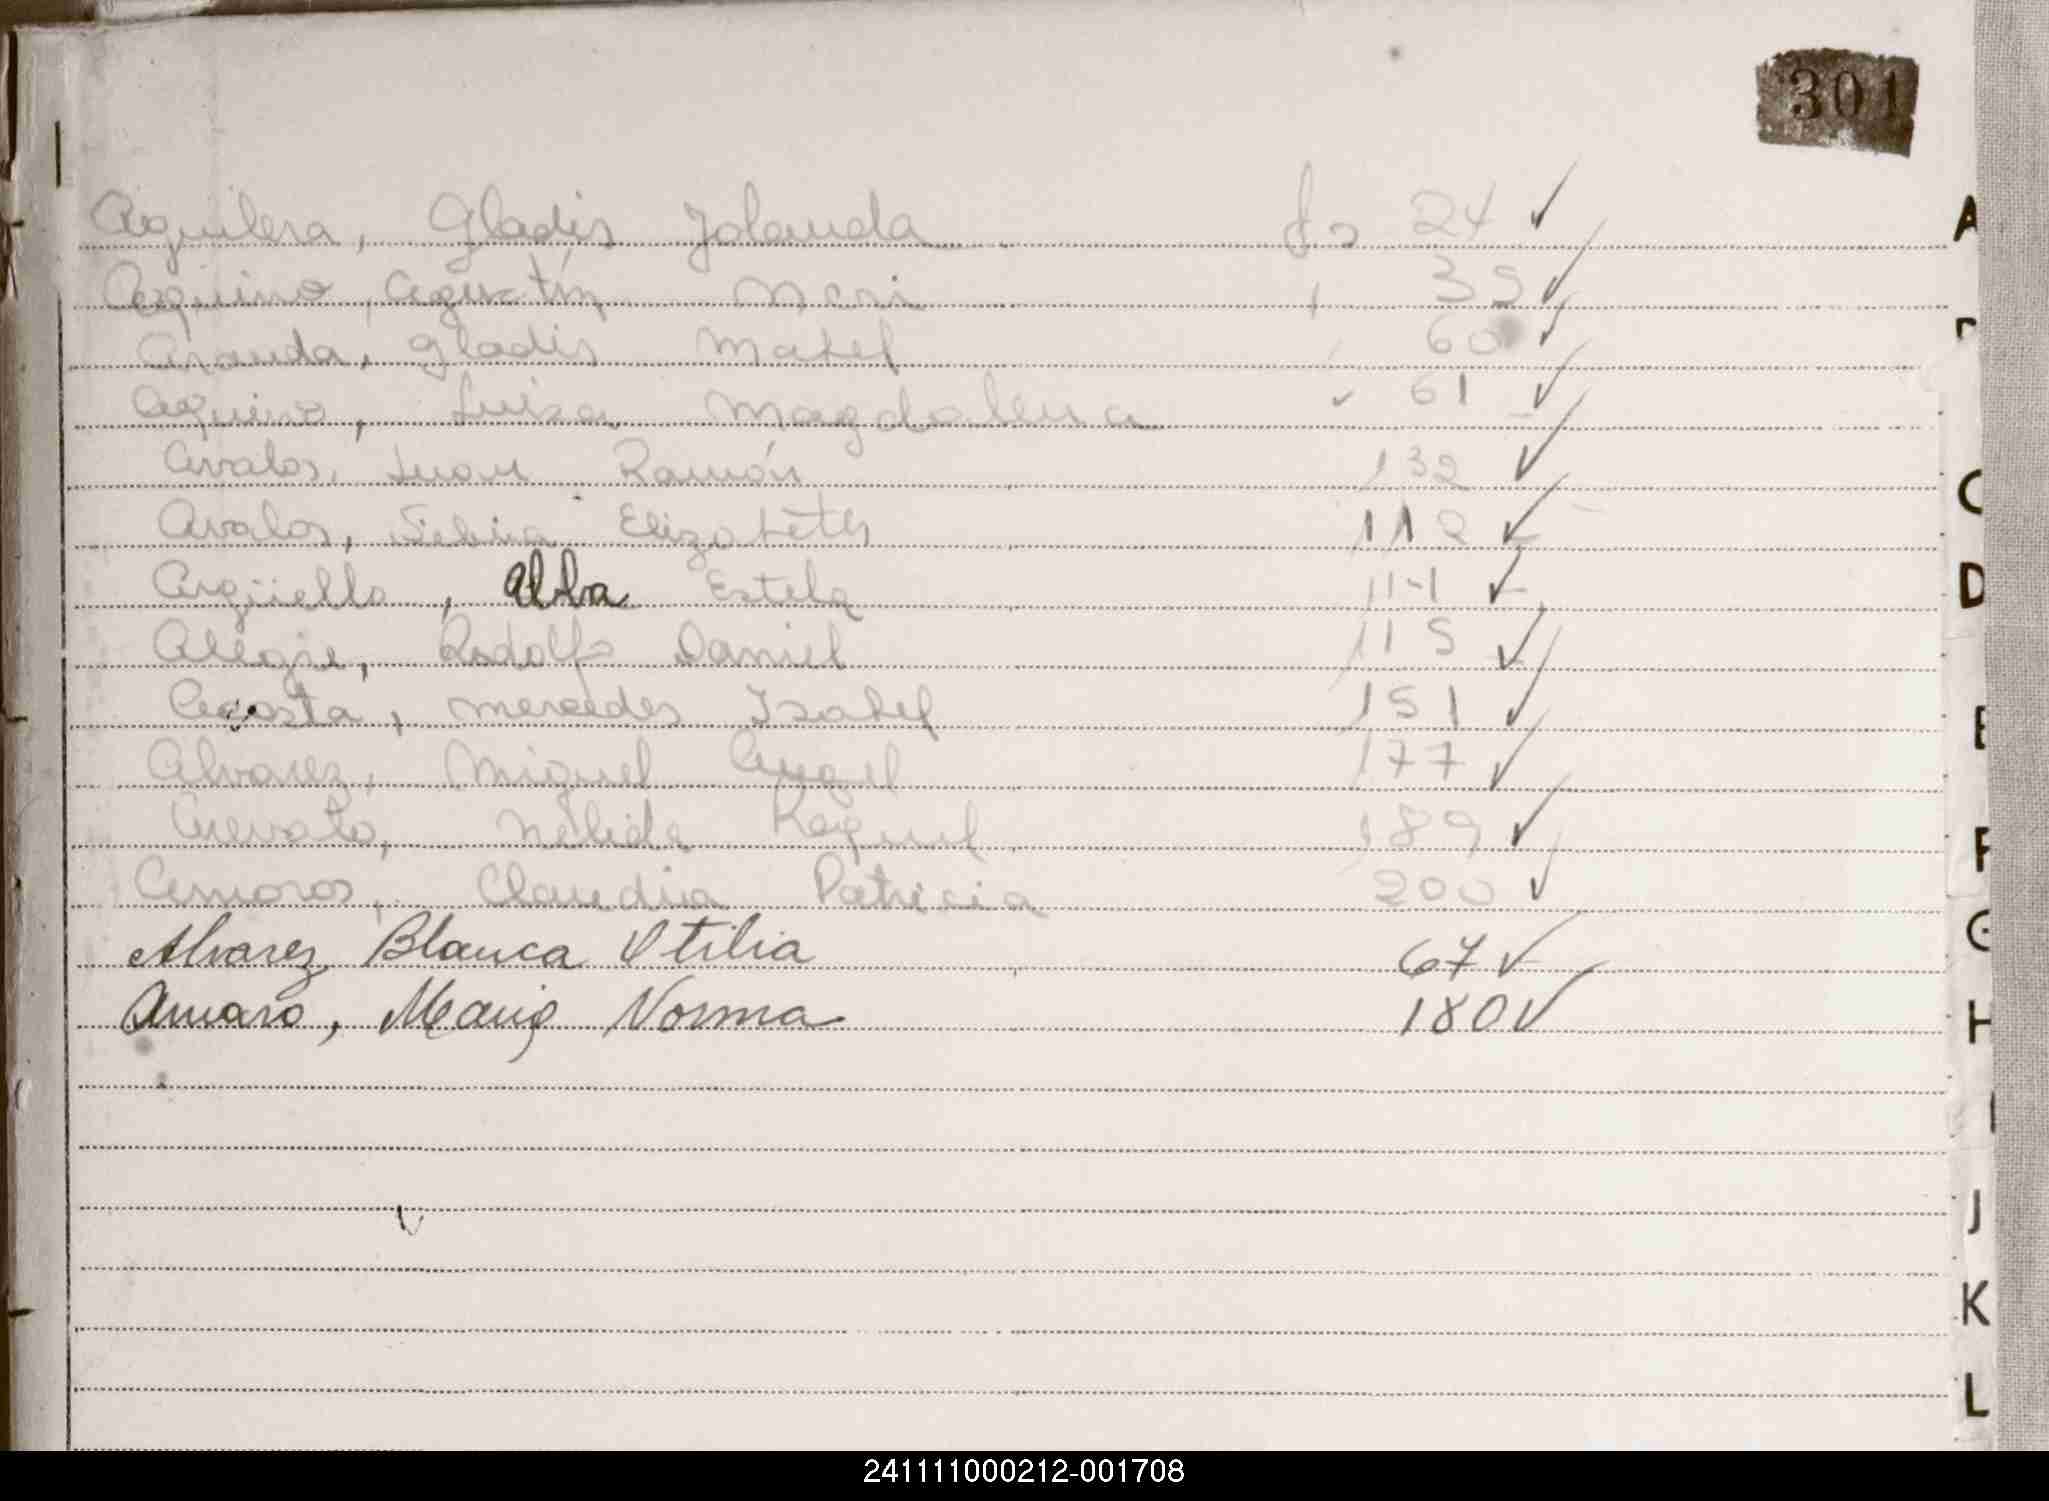 301
Aguilera, Gladis Jolanda fo 24 ✓
Aquino, Agustín Neri 39 ✓
Aranda, Gladis Mabel 60 ✓
Aquino, Luisa Magdalena 61 ✓
Avalos, Juan Ramón 132 ✓
Avalos, Elizabeth 112 ✓
Argüello, Alba Estela 111 ✓
Alegre, Rodolfo Daniel 115 ✓
Acosta, Mercedes Isabel 151 ✓
Alvarez, Miguel Angel 177 ✓
Arevalo, Nélida Raquel 189 ✓
Amoros, Claudia Patricia 200 ✓
Alvarez, Blanca Otilia 67 ✓
Amaro, Maria Norma 180 ✓
A
C
D
E
F
G
H
I
J
K
L
241111000212-001708